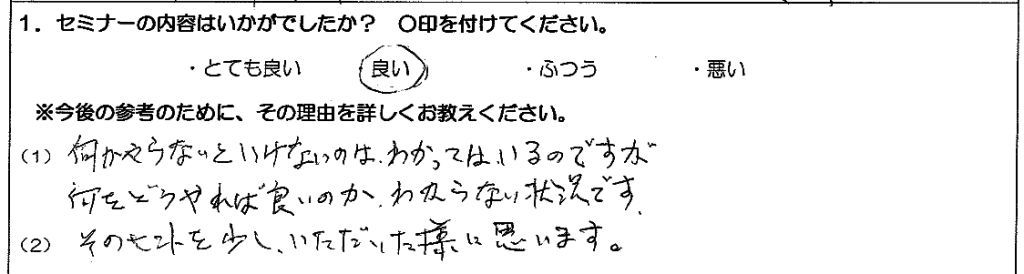 1．セミナーの内容はいかがでしたか？　〇印を付けてください。
・とても良い　良い　・ふつう　・悪い
※今後の参考のために、その理由を詳しくお教えください。
（1）何かやらないといけないのは、わかってはいるのですが
何をどうやれば良いのか、わからない状況です。
（2）そのヒントを少し、いただいた様に思います。